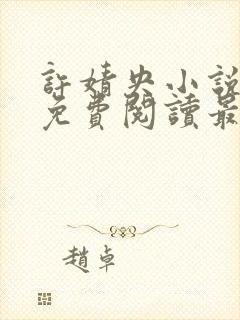 許婧央小說
免費閱讀最
趙卓